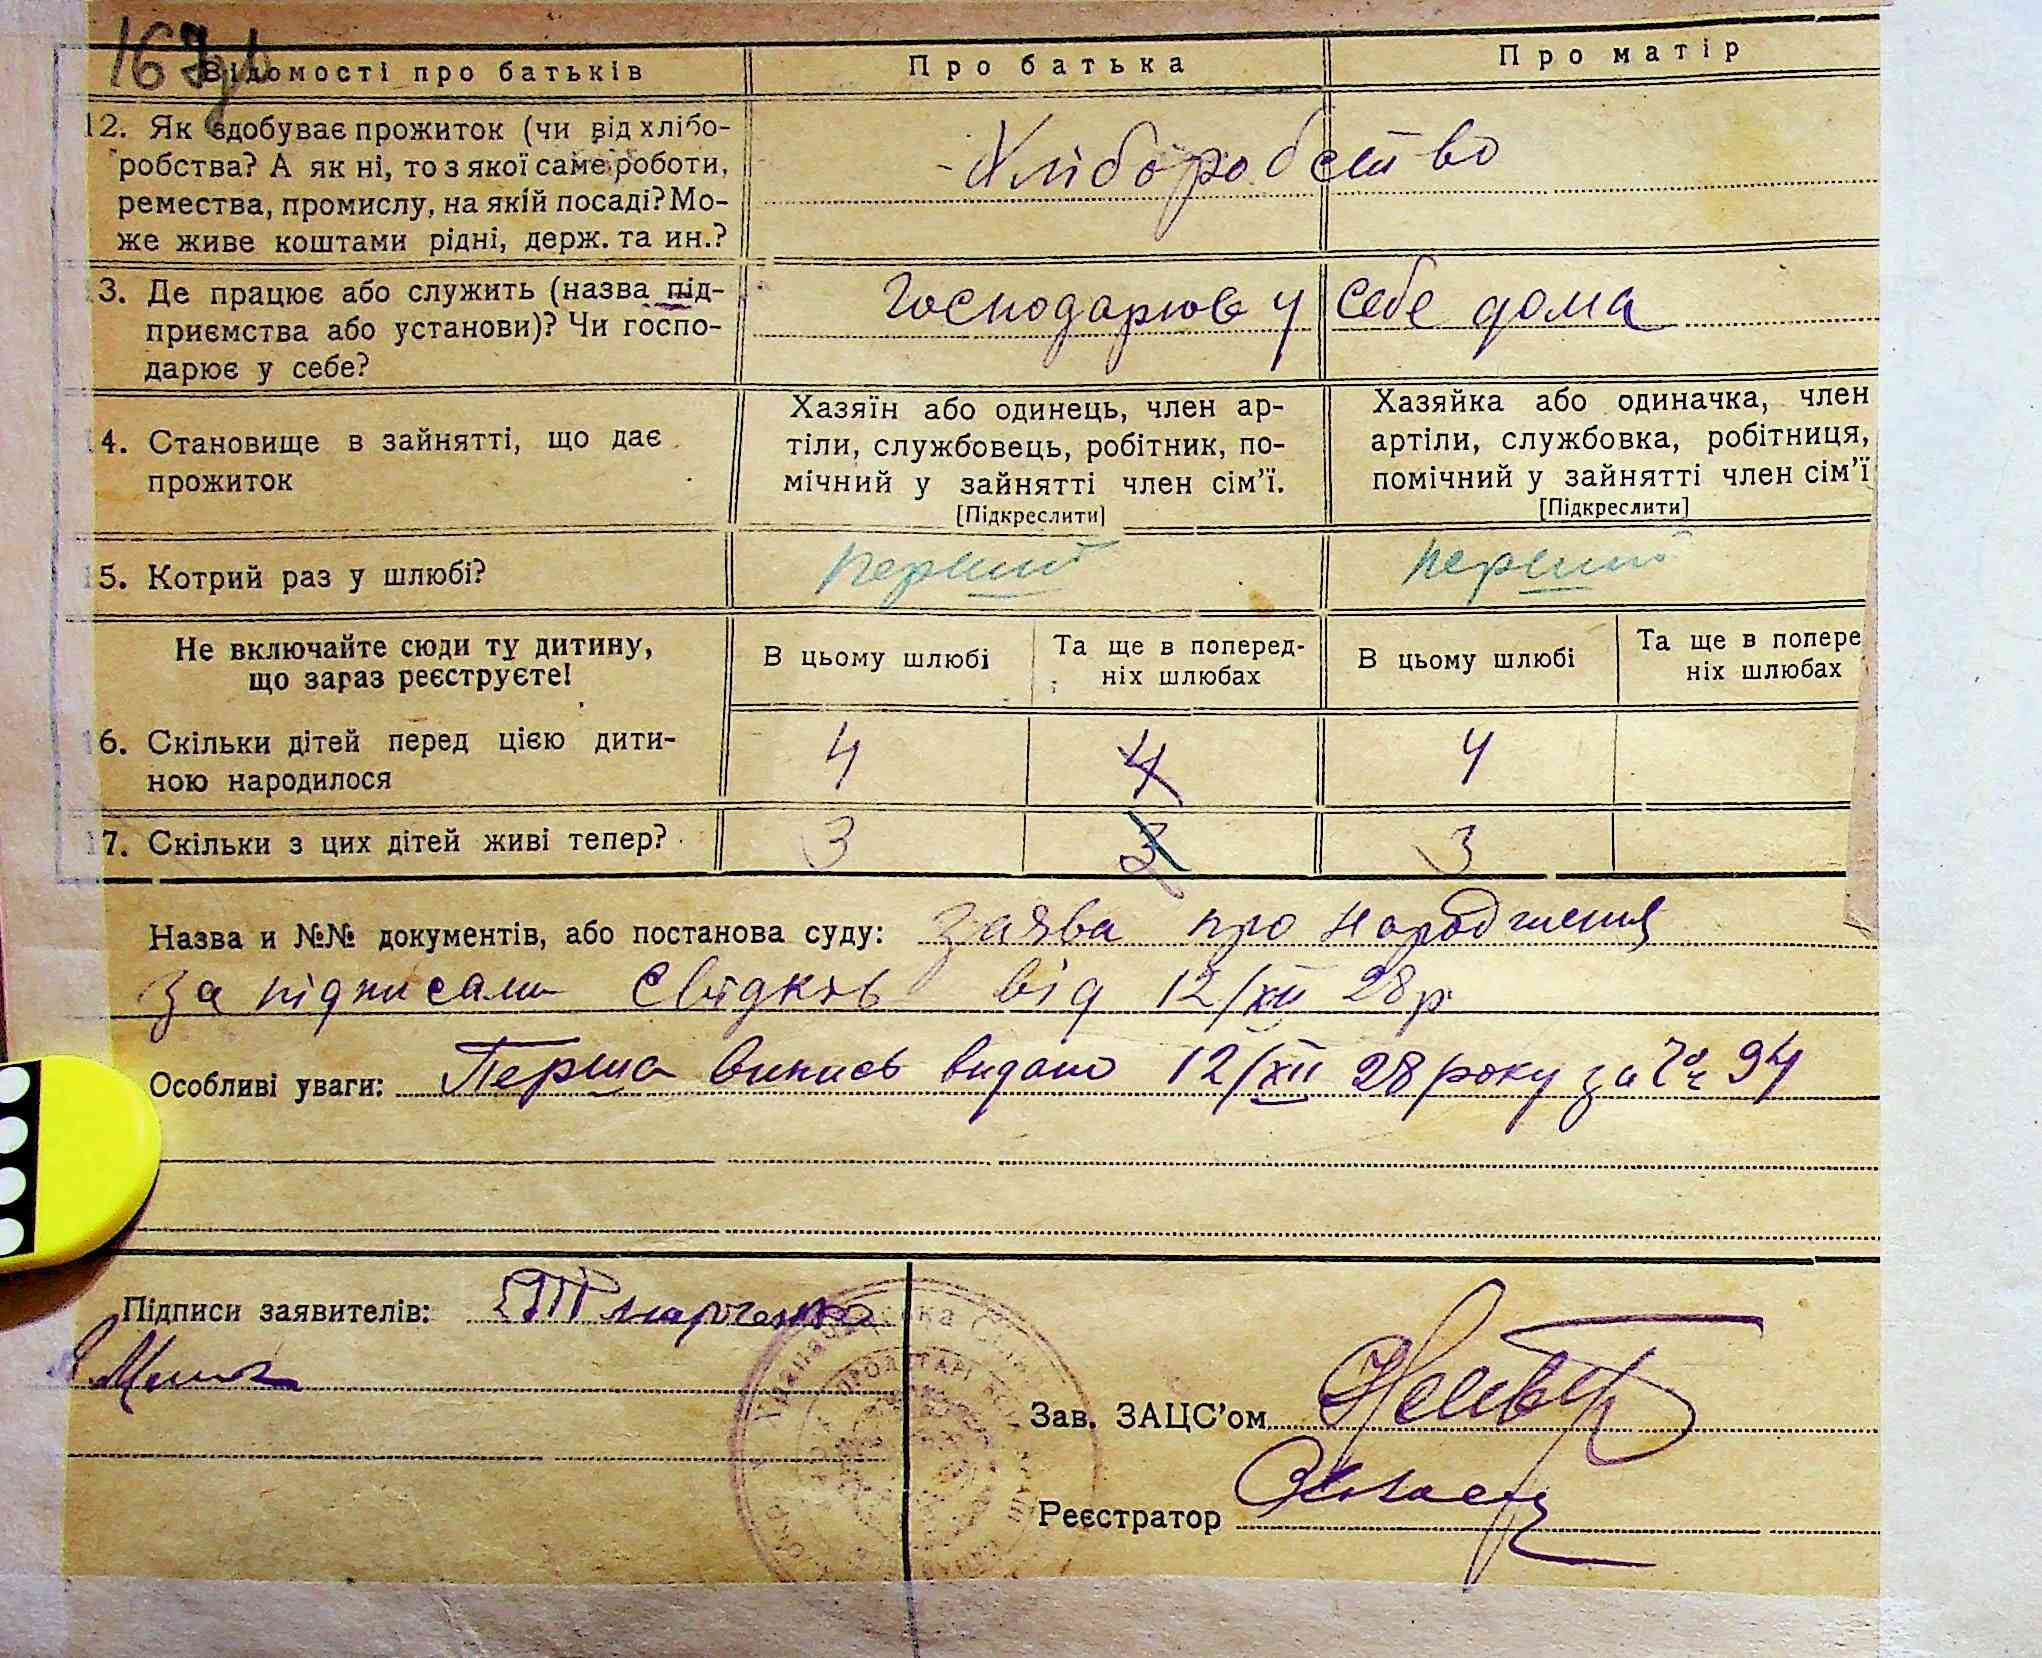 167
Відомості про батьків
Про батька
Про матір
12. Як здобуває прожиток (чи від хлібо-
робства? А як ні, то з якої саме роботи,
ремества, промислу, на якій посаді? Мо-
же живе коштами рідні, держ. та ин.?
Хліборобство
3. Де працює або служить (назва під-
приємства або установи)? Чи госпо-
дарює у себе?
Господарює у себе дома
4. Становище в зайнятті, що дає
прожиток
Хазяїн або одинець, член ар-
тіли, службовець, робітник, по-
мічний у зайнятті член сім’ї.
[Підкреслити]
Хазяйка або одиначка, член
артіли, службовка, робітниця,
помічний у зайнятті член сім’ї
[Підкреслити]
15. Котрий раз у шлюбі?
перший
перший
Не включайте сюди ту дитину,
що зараз реєструєте!
В цьому шлюбі
Та ще в поперед-
ніх шлюбах
В цьому шлюбі
Та ще в попере
ніх шлюбах
16. Скільки дітей перед цією дити-
ною народилося
4 4 4
17. Скільки з цих дітей живі тепер?
3 3 3
Назва и №№ документів, або постанова суду: Заява про народження
за підписами свідків від 12/XII 28 р
Особливі уваги: Перша випись видано 12/XII 28 року за 94
Підписи заявителів:
Зав. ЗАЦС’ом
Реєстратор